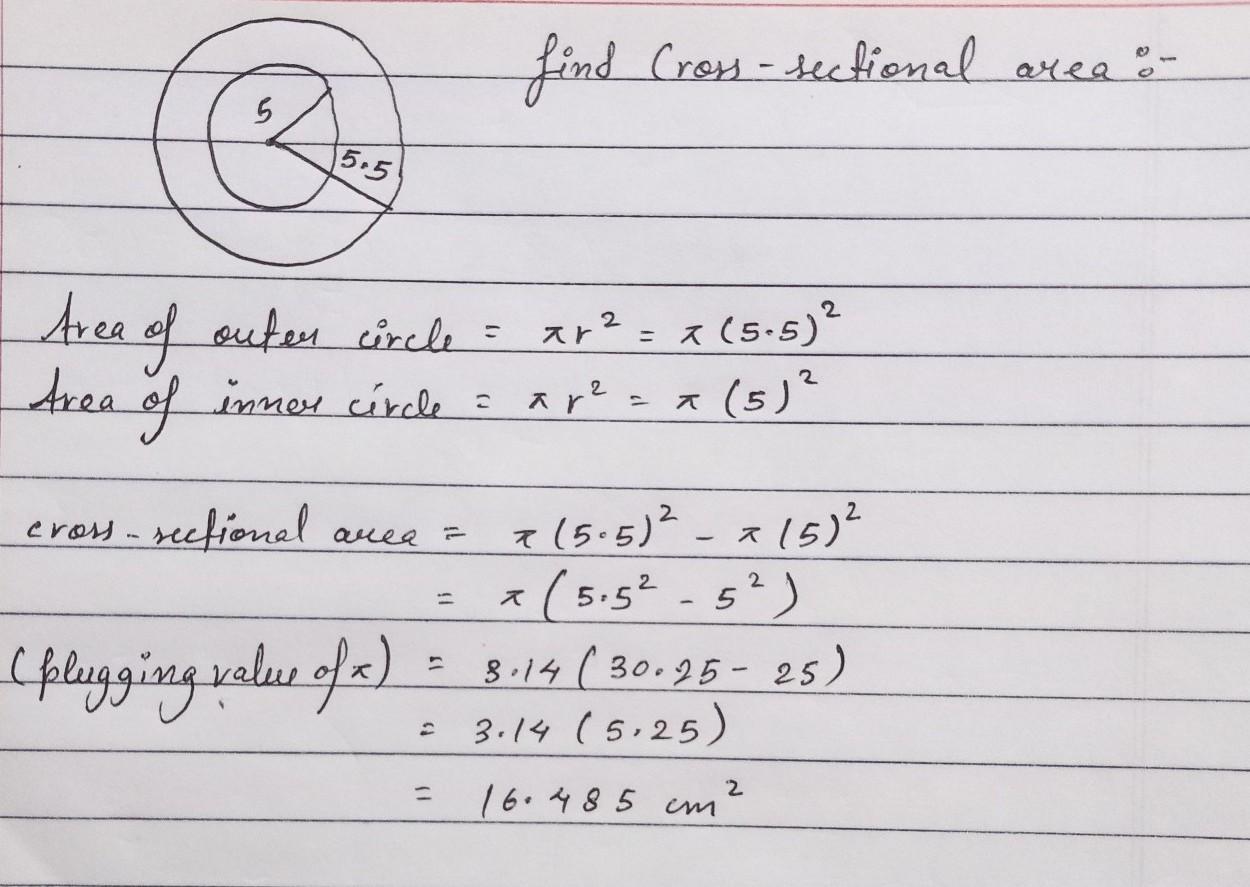 find Cross-sectional area :-
5
5.5
Area of outer circle = πr² = π(5.5)²
Area of inner circle = πr² = π(5)²
cross-sectional area = π(5.5)² - π(5)²
= π(5.5² - 5²)
(plugging value of π) = 3.14(30.25 - 25)
= 3.14(5.25)
= 16.485 cm²